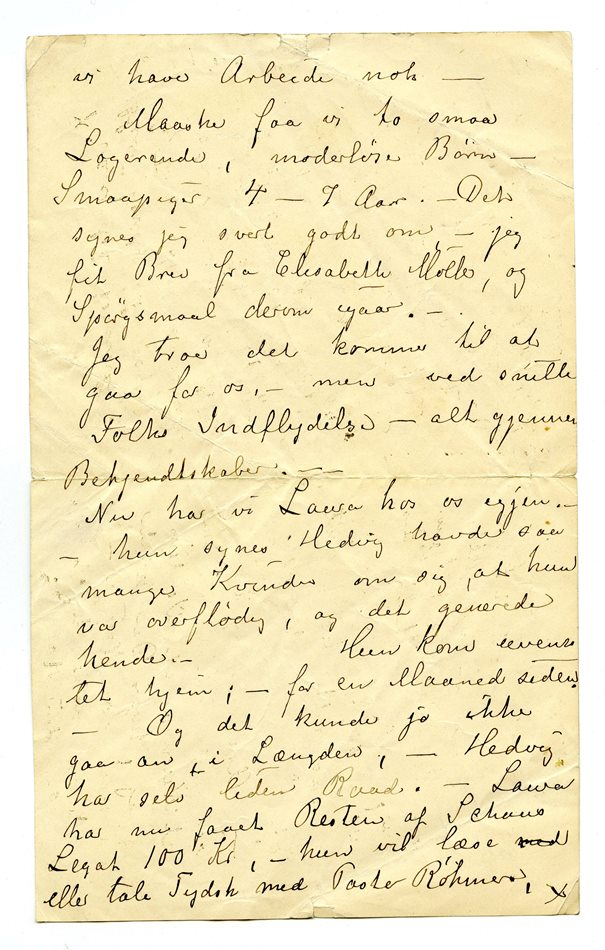 vi have Arbeide nok —
Maaske faa vi to smaa
Logerende, moderløse Børn —
Smaapiger 4 – 7 Aar. — Det
synes jeg svert godt om, — jeg
fik Brev fra Elisabeth Mölle, og
Spörgsmaal derom igaar. —
Jeg troe det komme til at
gaa for os, — men ved snille
Folks Indflydelse — alt gjennem
Bekjendtskaber. — —
Nu har vi Laura hos os igjen. —
— hun synes Hedvig havde saa
mange Kvinder om sig, at hun
var overflödig, og det generede
hende. — Hun kom uvens
tet hjem; — for en Maaned siden,
— Og det kunde jo ikke
gaa an, i Længden, — Hedvig
har selv liden Raad. — Laura
har nu faaet Resten af Schous
Legat 100 Kr, — hun vil læse med
eller tale Tydsk med Taster Röhmers,